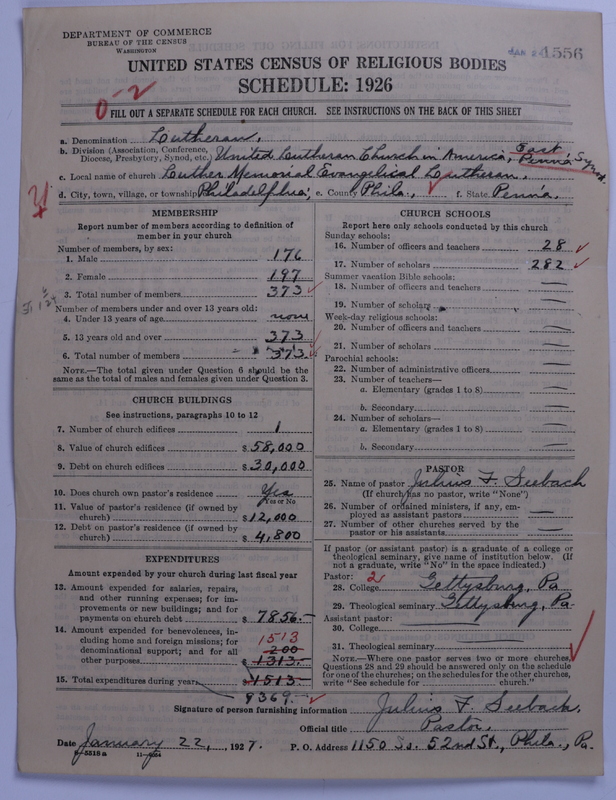 DEPARTMENT OF COMMERCE
BUREAU OF THE CENSUS
WASHINGTON
JAN 24556
UNITED STATES CENSUS OF RELIGIOUS BODIES
SCHEDULE: 1926
0-2
FILL OUT A SEPARATE SCHEDULE FOR EACH CHURCH. SEE INSTRUCTIONS ON THE BACK OF THIS SHEET
a. Denomination Lutheran,
b. Division (Association, Conference, Diocese, Presbytery, Synod, etc.) United Lutheran Church in America, East Penn'a Synod.
c. Local name of church Luther Memorial Evangelical Lutheran,
d. City, town, village, or township Philadelphia; e. County Phila., f. State Penn'a,
MEMBERSHIP
Report number of members according to definition of member in your church
Number of members, by sex:
1. Male 176
2. Female 197
3. Total number of members 373
Number of members under and over 13 years old:
4. Under 13 years of age none
5. 13 years old and over 373
6. Total number of members 373
NOTE.—The total given under Question 6 should be the same as the total of males and females given under Question 3.
CHURCH BUILDINGS
See instructions, paragraphs 10 to 12
7. Number of church edifices 1
8. Value of church edifices $58,000
9. Debt on church edifices $30,000
10. Does church own pastor's residence Yes
Yes or No
11. Value of pastor's residence (if owned by church) $12,000
12. Debt on pastor's residence (if owned by church) $4,800
EXPENDITURES
Amount expended by your church during last fiscal year
13. Amount expended for salaries, repairs, and other running expenses; for improvements or new buildings; and for payments on church debt $7856.-
14. Amount expended for benevolences, including home and foreign missions; for denominational support; and for all other purposes 1513 200 $1313.
15. Total expenditures during year $1513-
9369.-
CHURCH SCHOOLS
Report here only schools conducted by this church
Sunday schools:
16. Number of officers and teachers 28
17. Number of scholars 282
Summer vacation Bible schools:
18. Number of officers and teachers —
19. Number of scholars —
Week-day religious schools:
20. Number of officers and teachers —
21. Number of scholars —
Parochial schools:
22. Number of administrative officers —
23. Number of teachers—
a. Elementary (grades 1 to 8) —
b. Secondary —
24. Number of scholars—
a. Elementary (grades 1 to 8) —
b. Secondary —
PASTOR
25. Name of pastor Julius F. Seebach
(If church has no pastor, write "None")
26. Number of ordained ministers, if any, employed as assistant pastors —
27. Number of other churches served by the pastor or his assistants —
If pastor (or assistant pastor) is a graduate of a college or theological seminary, give name of institution below. (If not a graduate, write "No" in the space indicated.)
Pastor: 2
28. College Gettysburg, Pa
29. Theological seminary Gettysburg, Pa.
Assistant pastor:
30. College —
31. Theological seminary —
NOTE.—Where one pastor serves two or more churches, Questions 28 and 29 should be answered only on the schedule for one of the churches; on the schedules for the other churches, write "See schedule for church."
Signature of person furnishing information Julius F. Seebach,
Official title Pastor,
Date January 22, 1927. P. O. Address 1150 So. 52nd St., Phila., Pa.
8-5518a